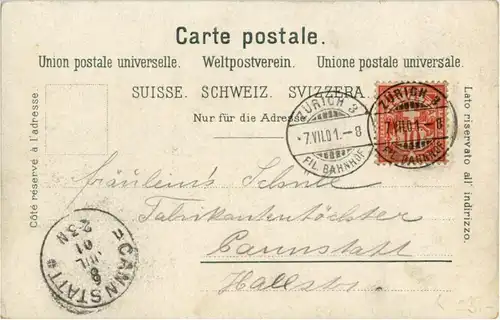 Carte postale.
Union postale universelle. Weltpostverein. Unione postale universale.
SUISSE. SCHWEIZ. SVIZZERA.
Nur für die Adresse
Côté réservé à l'adresse
Lato riservato all' indirizzo.
ZÜRICH 3
7.VII.01.–8
FIL. BAHNHOF
ZÜRICH 3
7.VII.01.–8
FIL. BAHNHOF
Fräulein's
Fabrikantentöchter
Cannstatt
CANNSTATT